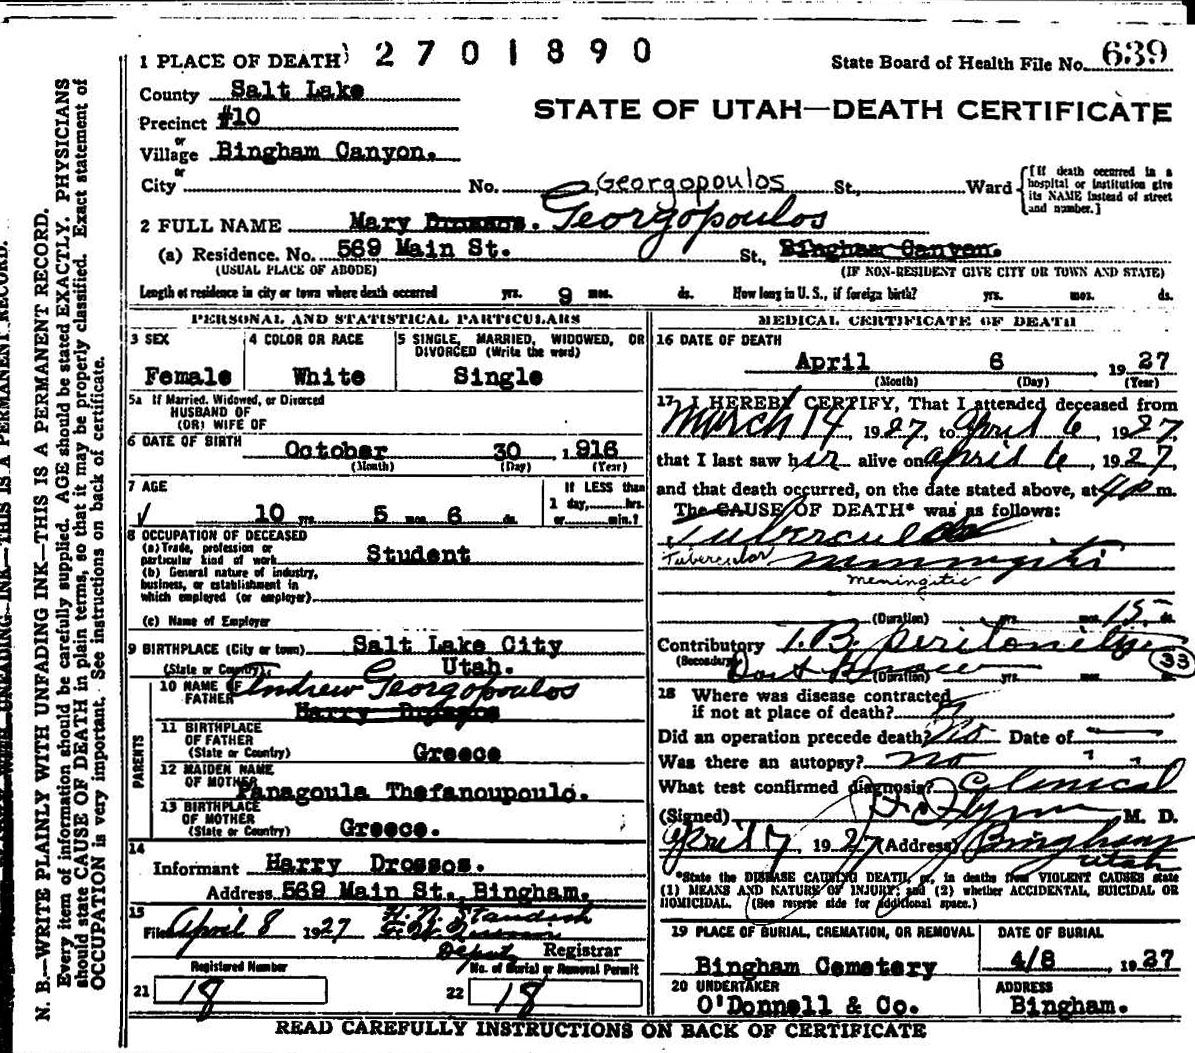 1 PLACE OF DEATH 2701890 State Board of Health File No. 639
County Salt Lake
STATE OF UTAH—DEATH CERTIFICATE
Precinct #10
or
Village Bingham Canyon.
or
City No. Georgopoulos St., Ward
[If death occurred in a hospital or institution give its NAME instead of street and number.]
2 FULL NAME Mary Drossos. Georgopoulos
(a) Residence. No. 569 Main St. St., Bingham Canyon.
(USUAL PLACE OF ABODE) (IF NON-RESIDENT GIVE CITY OR TOWN AND STATE)
Length of residence in city or town where death occurred yrs. 9 mos. ds. How long in U. S., if foreign birth? yrs. mos. ds.
PERSONAL AND STATISTICAL PARTICULARS
3 SEX 4 COLOR OR RACE 5 SINGLE, MARRIED, WIDOWED, OR
DIVORCED (Write the word)
Female White Single
5a If Married, Widowed, or Divorced
HUSBAND OF
(OR) WIFE OF
6 DATE OF BIRTH October 30, 1916
(Month) (Day) (Year)
7 AGE If LESS than
1 day, hrs.
10 yrs. 5 mos. 6 ds. or min.?
8 OCCUPATION OF DECEASED
(a) Trade, profession or
particular kind of work Student
(b) General nature of industry,
business, or establishment in
which employed (or employer)
(c) Name of Employer
9 BIRTHPLACE (City or town) Salt Lake City
(State or Country) Utah.
PARENTS
10 NAME OF Andrew Georgopoulos
FATHER Harry Drossos
11 BIRTHPLACE
OF FATHER
(State or Country) Greece
12 MAIDEN NAME
OF MOTHER Panagoula Thefanoupoulo.
13 BIRTHPLACE
OF MOTHER
(State or Country) Greece.
14
Informant Harry Drossos.
Address 569 Main St., Bingham.
15
Filed April 8 1927 H. N. Standish
Deputy Registrar
Registered Number No. of Burial or Removal Permit
21 18 22 18
MEDICAL CERTIFICATE OF DEATH
16 DATE OF DEATH
April 6 1927
(Month) (Day) (Year)
17 I HEREBY CERTIFY, That I attended deceased from
March 14, 1927, to April 6, 1927,
that I last saw her alive on April 6, 1927,
and that death occurred, on the date stated above, at 4 p m.
The CAUSE OF DEATH* was as follows:
Tubercular
Tubercular meningitis
meningitic
(Duration) yrs. mos. 15 ds.
Contributory T.B. peritonitis
(Secondary) Don't Know (Duration) yrs. mos. ds.
33
18 Where was disease contracted
if not at place of death?
Did an operation precede death? No Date of
Was there an autopsy? No
What test confirmed diagnosis? Clinical
(Signed) Flynn M. D.
April 7, 1927 (Address) Bingham
Utah
*State the DISEASE CAUSING DEATH, or, in deaths from VIOLENT CAUSES state
(1) MEANS AND NATURE OF INJURY; and (2) whether ACCIDENTAL, SUICIDAL OR
HOMICIDAL. (See reverse side for additional space.)
19 PLACE OF BURIAL, CREMATION, OR REMOVAL DATE OF BURIAL
Bingham Cemetery 4/8 1927
20 UNDERTAKER ADDRESS
O'Donnell & Co. Bingham.
READ CAREFULLY INSTRUCTIONS ON BACK OF CERTIFICATE
N. B.—WRITE PLAINLY WITH UNFADING INK—THIS IS A PERMANENT RECORD.
Every item of information should be carefully supplied. AGE should be stated EXACTLY. PHYSICIANS
should state CAUSE OF DEATH in plain terms, so that it may be properly classified. Exact statement of
OCCUPATION is very important. See instructions on back of certificate.